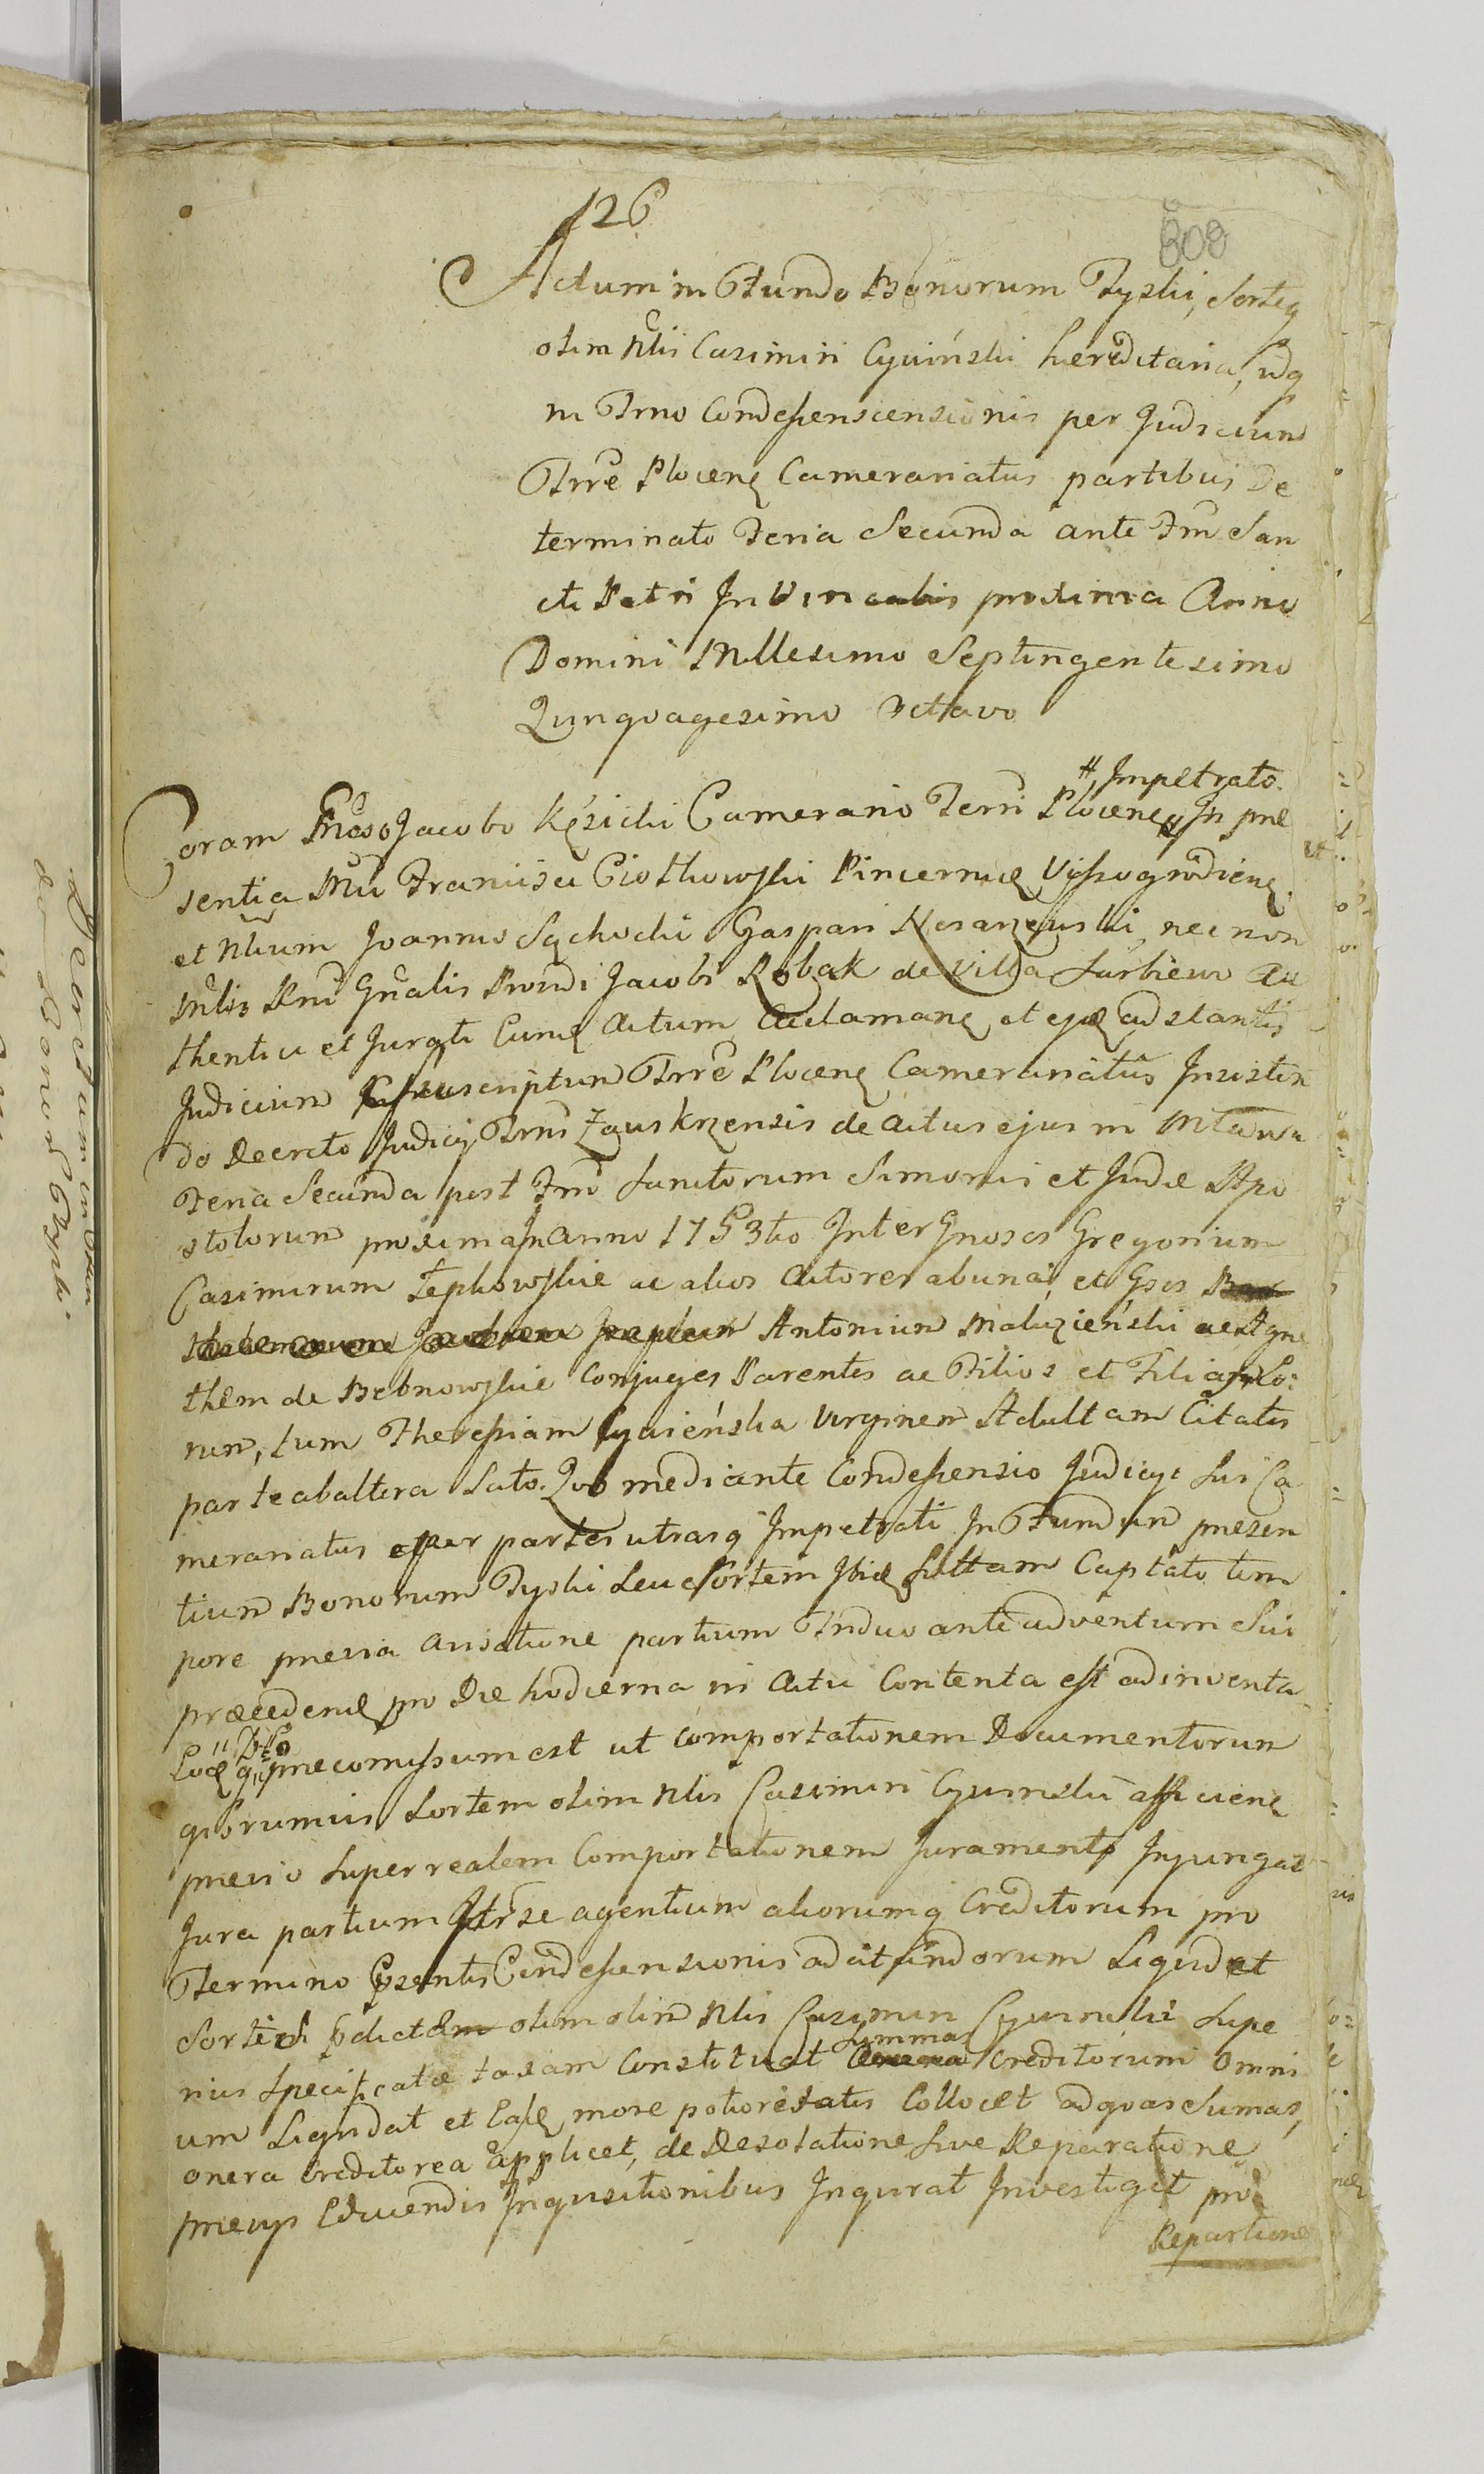 126
308
Actum in Fundo Bonorum Tyski, Sorteq
olim Nlii Casimiri Cywiński hæreditaria, idq
in Trno Condescensionis per Judicium
Trre Plocenę Camerariatus partibus De
terminato Feria Secunda ante Fm San
cti Petri In Vinculis proxima Anno
Domini Millesimo Septingentesimo
Qunquagesimo Octavo
# Impetrato.
Coram Gnoso Jacobo Kęsicki Camerario Terri Plocenę # In præ
sentia Mci Francisci Ciołkowski Pincernæ Vyssogrodienę.
et Nlium Joannis Sęchocki Gaspari Nosarzewski, nec non
Mlis Rni Gnalis Providi Jacobi Robak de Villa Surbiewo Au
thentici et Jurati Eund Actum Acclamanę et ejæ adstantis
Judicium Suprascriptum Trre Plocenę Camerariatus Insisten
do Decreto Judicij Trris Zauskrzensis de Actu ejus in Mława
Feria Secunda post Fm Sanctorum Simonis et Judæ Apo
stolorum proxima In Anno 1753tio Inter Gnosos Gregorium
Casimirum Łepkowskie ac alios Actores ab una, et Gsos
Antonium Małużieński ac Agne
them de Bebnowskie Conjuges Parentes ac Filios et Filias Eo:
rum, tum Theresiam Cywieńska Virginem Adultam Citatis
parte ab altera Lato. Quo mediante Condescensio Judicij sui Ca
merariatus per partes utrasq Impetrati In Fundum præsen
tium Bonorum Tyski Seu Sortem Ibid Sittam Captato tem
pore prævia avisatione partium Triduo ante adventum Sui
præcedenę pro Die hodierna in Actu Contenta est ad inventa
Eod q Dto præcomissum est ut Comportationem Documentorum
qūorumvis Sortem olim Nlis Casimiri Cywinski afficienę
prævio super realem Comportationem Juramento Injungat
Jura partium Intr se agentium aliorumq Creditorum pro
Termino Præsentis Condescensionis adcitandorum Liquidet
Sorti prædictæ olim olim Nlis Casimiri Cywinski Supe
rius specificatæ taxam Constituat Summas Creditorum Omni
um Liquidat et Easd more potioritatis Collocet ad quas Sumas,
onera Creditorea applicet, de Desolatione Sive Reparatione
prævijs Educendis Inquisitionibus Inquirat Investiget pro
Repartione